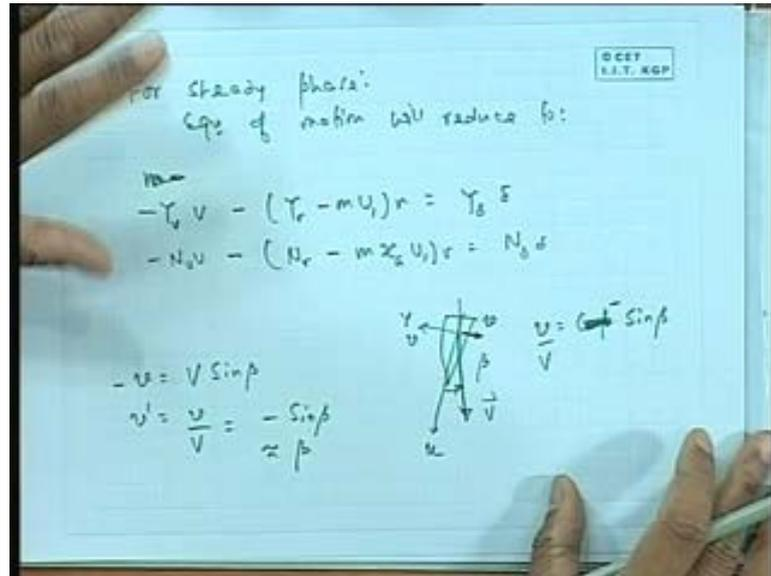 © CET
I.I.T. KGP
For steady phase:
Eqs of motion will reduce to:
-Yᵥ v - (Yᵣ - mU₁)r = Y_δ δ
-Nᵥ v - (Nᵣ - m x_G U₁)r = N_δ δ
Y v
v
β
V
x
v/V = - Sinβ
-v = V Sinβ
v' = v/V = - Sinβ
≈ β